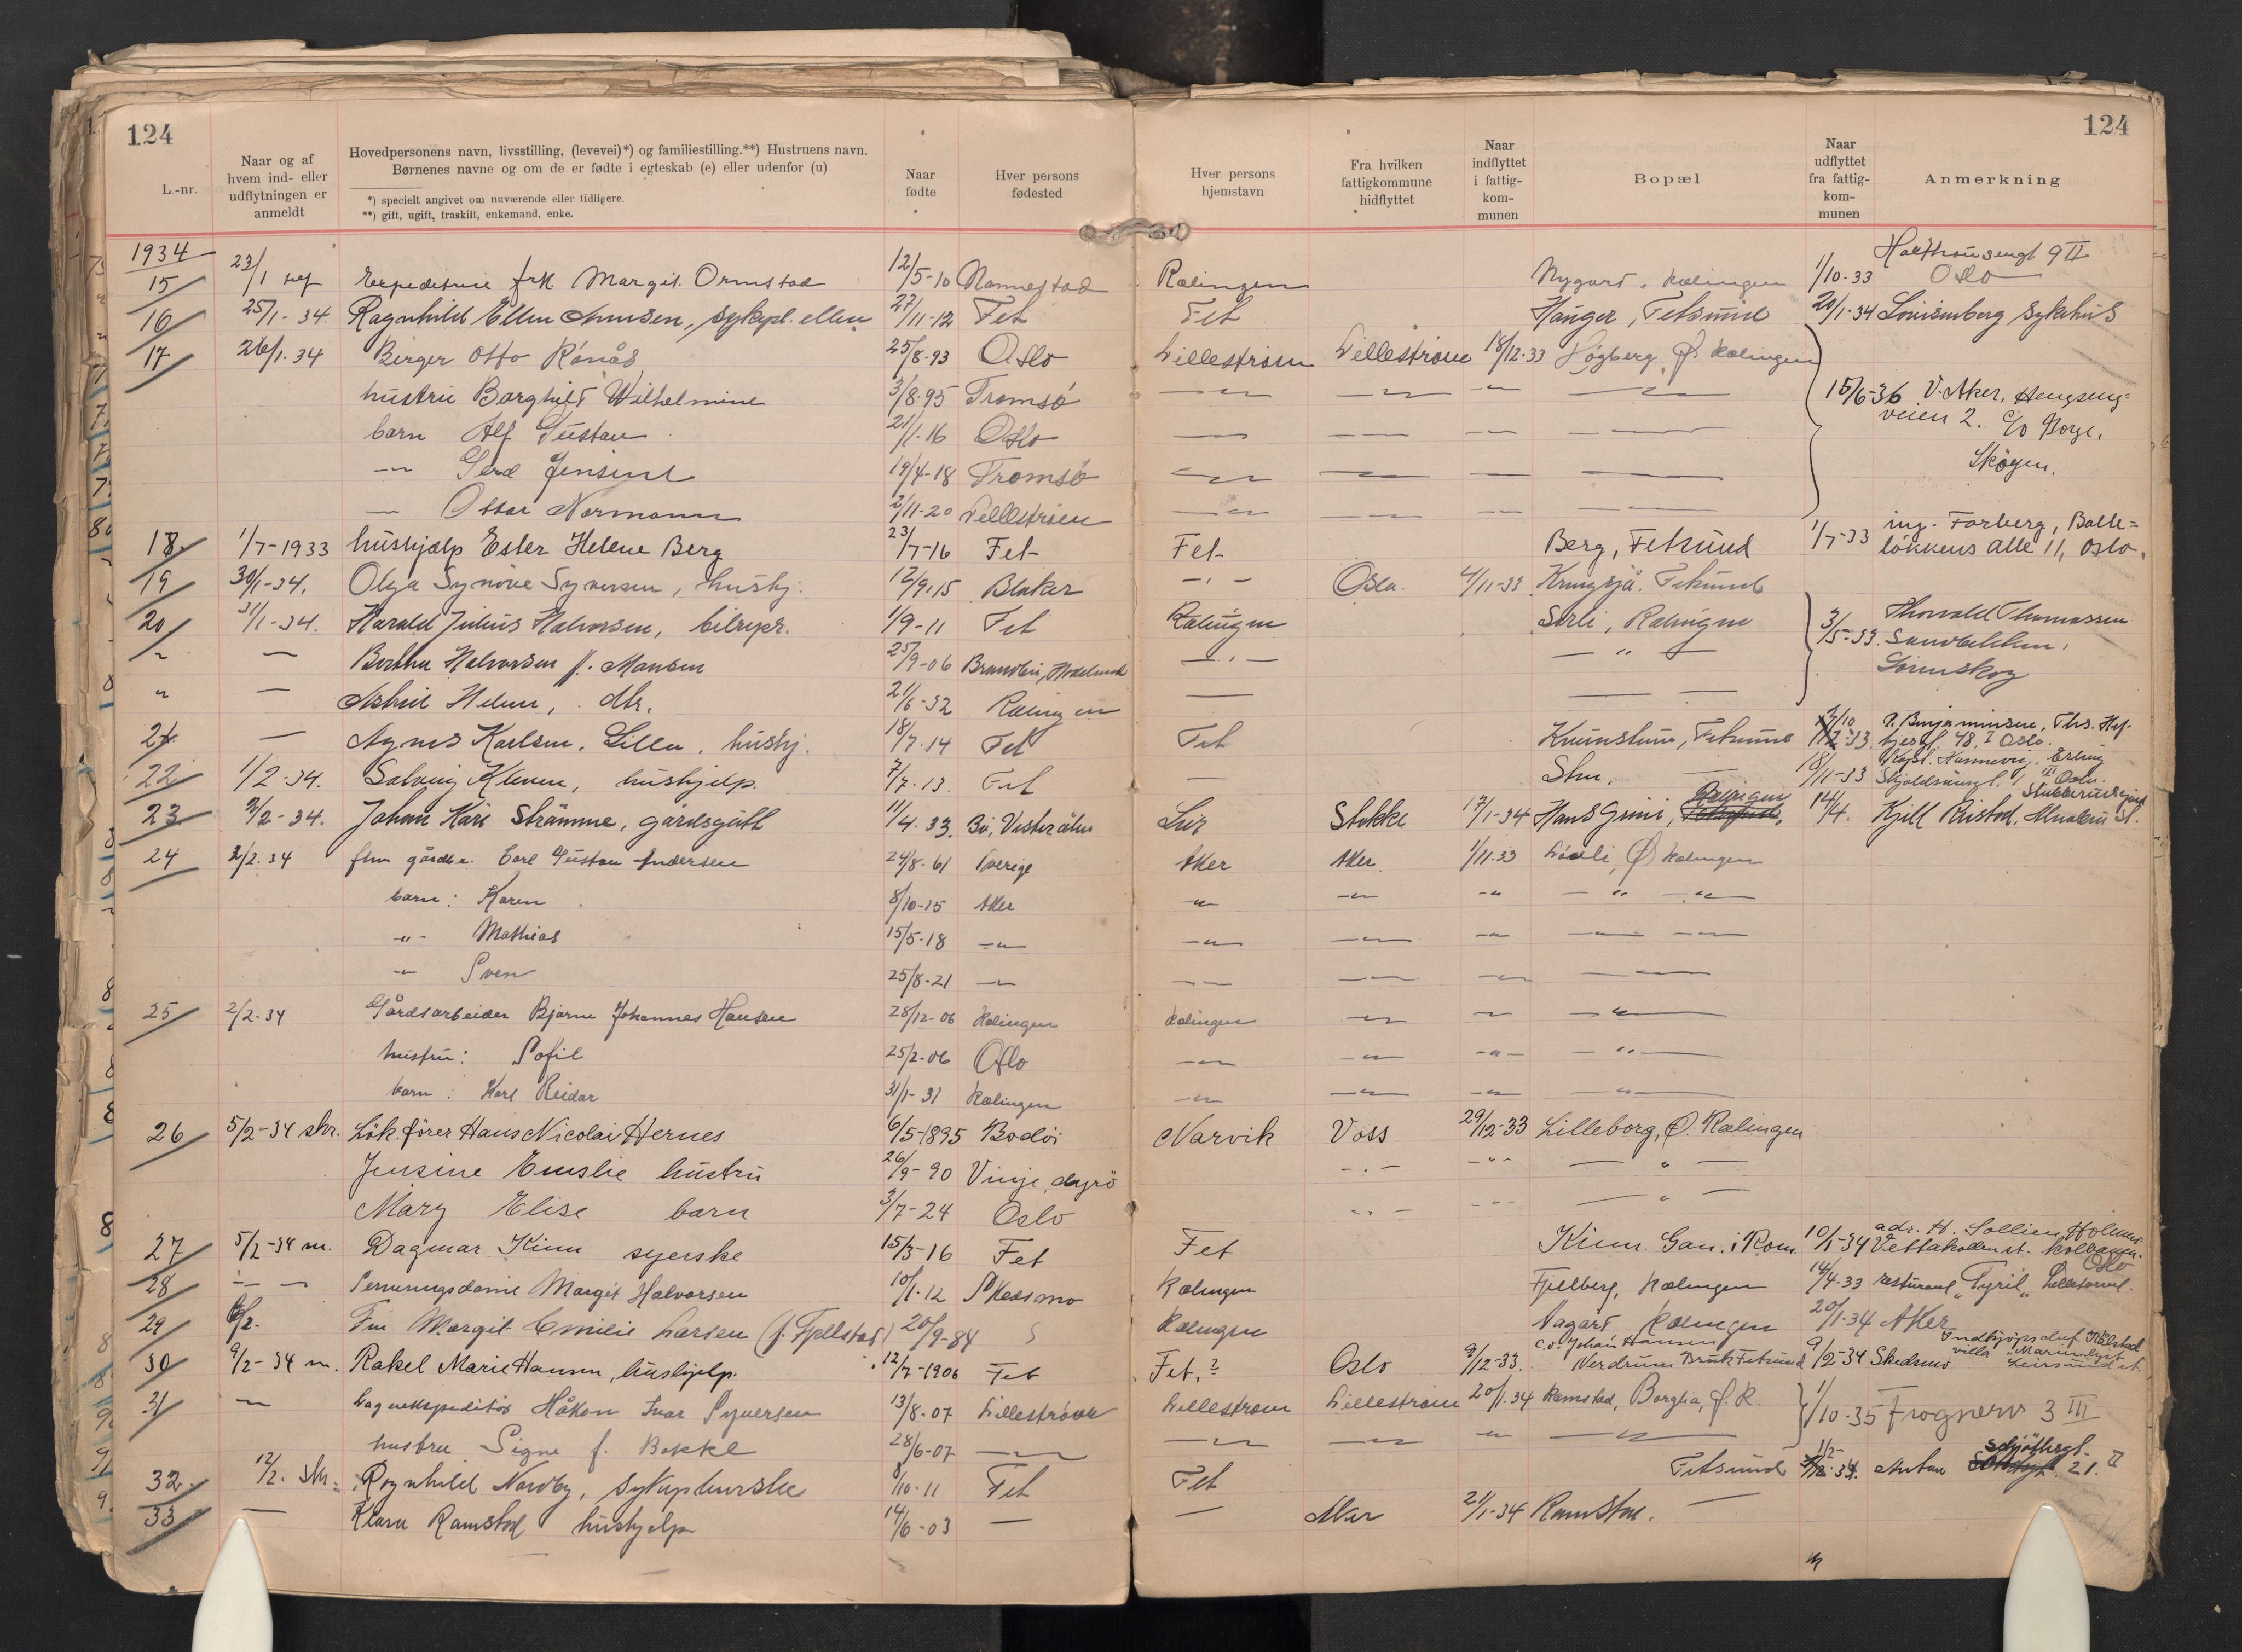 124
124
L.-nr.
Naar og af hvem ind- eller udflytningen er anmeldt
Hovedpersonens navn, livsstilling, (levevei)*) og familiestilling.**) Hustruens navn.
Børnenes navne og om de er fødte i egteskab (e) eller udenfor (u)
*) specielt angivet om nuværende eller tidligere.
**) gift, ugift, fraskilt, enkemand, enke.
Naar fødte
Hver persons fødested
Hver persons hjemstavn
Fra hvilken fattigkommune hidflyttet
Naar indflyttet i fattig-kom-munen
Bopæl
Naar udflyttet fra fattig-kom-munen
Anmerkning
1934
15 23/1 frk Margit Ormstad 12/5-10 Nannestad Rælingen Nygård, Rælingen 1/10-33 9 II Oslo
16 25/1-34 Ragnhild Ellen 22/11-12 Fet Fet Hauger, Fetsund 20/1-34 Sykehus
17 26/1.34 Birger Otto Rånås 25/8-93 Oslo Lillestrøm Lillestrøm 18/12-33 Høgberg, Ø. Rælingen
hustru Borghild Wilhelmine 3/8-95 Tromsø —"— —"— —"— —"— 15/6-36 V. Aker, Hengseng=
barn Alf Gustav 21/1-16 Oslo —"— —"— —"— —"— veien 2. c/o Borge.
—"— Gerd Jensine 19/4-18 Tromsø —"— —"— —"— —"— Skøyen.
—"— Ottar Normann 2/11-20 Lillestrøm —"— —"— —"— —"—
18. 1/7-1933 hushjælp Ester Helene Berg 23/7-16 Fet Fet Berg, Fetsund 1/7-33 ing. Forberg, Balle=
løkkens alle 11, Oslo.
19 30/1-34. Olga Synøve Syversen, hushj. 12/9.15 Blaker —"— Oslo. 4/11-33 Kringsjå. Fetsund
20 31/1-34. Harald Julius Halvorsen, bilrepr. 1/9-11 Fet Rælingen Sørli, Rælingen 3/5-33. Thorvald Thomassen
" — Berthe Halvorsen f. Hansen 25/9-06 —"— —"— Sandbekken,
" — Astrid Helene, dtr. 21/6-32 Rælingen — — Lørenskog
21 — Agnes Karlsen, Lilla, hushj. 18/7-14 Fet Fet Fetsund
22 1/2-34. Solveig Kleven, hushjelp. 7/7-13. Fet — 18/11-33 Oslo.
23 2/2-34. Johan Kåre Strømme, gårdsgutt 11/4-33. Bø, Vesterålen Stokke 17/1-34 Hans Rælingen 14/4. Kjell
24 2/2.34 Carl Gustav Andersen 24/8-61 Sverige Aker Aker 1/11.33 Ø Rælingen
barn: Karen 8/10-15 Aker —"— —"— —"— —"—
—"— Mathias 15/5-18 —"— —"— —"— —"— —"—
—"— Sven 25/8-21 —"— —"— —"— —"— —"—
25 2/2-34 Gårdsarbeider Bjarne Johannes Hansen 28/12-06 Rælingen Rælingen —"— —"— —"—
hustru: Sofie 25/2-06 Oslo —"— —"— —"— —"—
barn: Karl Reidar 31/1-31 Rælingen —"— —"— —"— —"—
26 5/2-34 skr. Lok.fører Hans Nicolai Hernes 6/5-1895 Bodø Narvik Voss 29/12-33 Lilleborg, Ø. Rælingen
Jensine Emelie hustru 26/9-90 Vinje, dyrø —"— —"— —"—
Mary Elise barn 3/7-24 Oslo —"— —"— —"—
27 5/2-34 m. Dagmar Kinn syerske 15/3-16 Fet Fet Kinn. Gan. i Rom. 10/1-34 adr. H. Sollien, Holmen-
Vettakollen st. kolbanen. Oslo
28 —"— Serveringsdame Margit Halvorsen 10/1-12 Skedsmo Rælingen Fjellberg, Rælingen 14/4-33 "Tyril"
29 6/2. Margit Emilie Larsen (f. Fjellstad) 20/9-84 Rælingen Rælingen 20/1-34 Aker
30 9/2-34 m. Rakel Marie Hansen, hushjelp. 12/7-1906 Fet Fet.? Oslo 9/12-33. c.o. Johan Hansen
Nerdrum Bruk Fetsund 9/2-34 Skedsmo villa "Marienlyst"
31 —"— Håkon Ivar Syversen 13/8-07 Lillestrøm Lillestrøm Lillestrøm 20/1.34 Ramstad, Borglia, Ø. R. 1/10-35 Frognerv 3 III
hustru Signe f. Bekke 28/6-07 —"— —"— —"— —"— —"—
32. 12/2. skr. Ragnhild Nordby, 8/10-11 Fet Fet Fetsund 21. II
33 — Klara Ramstad hushjelp 14/6-03 — — Aker 21/1-34 Ramstad. —